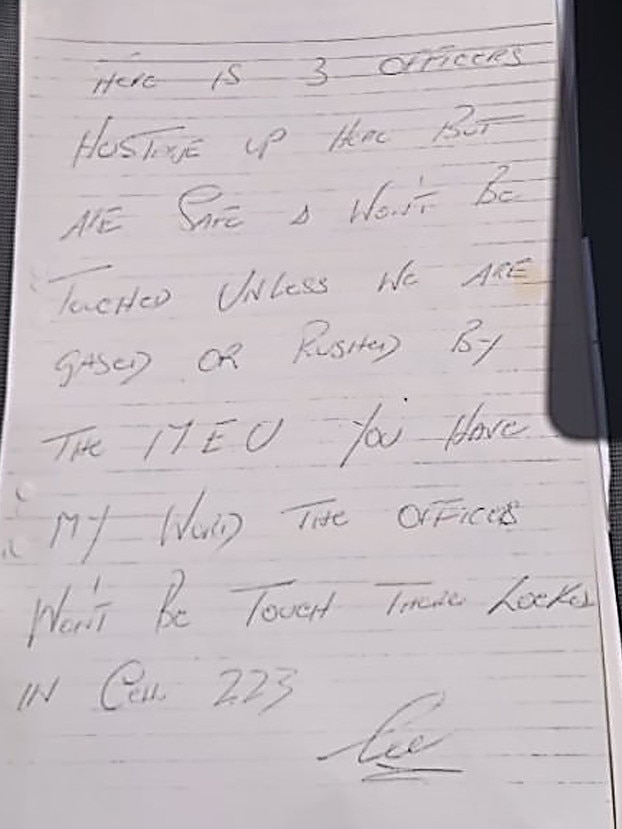 HERE IS 3 OFFICERS
HOSTAGE UP HERE BUT
ARE SAFE & WON'T BE
TUCHED UNLESS WE ARE
GASED OR RUSHED BY
THE ITEU YOU HAVE
MY WORD THE OFFICES
WON'T BE TOUCH THERE LOCKED
IN CELL 223